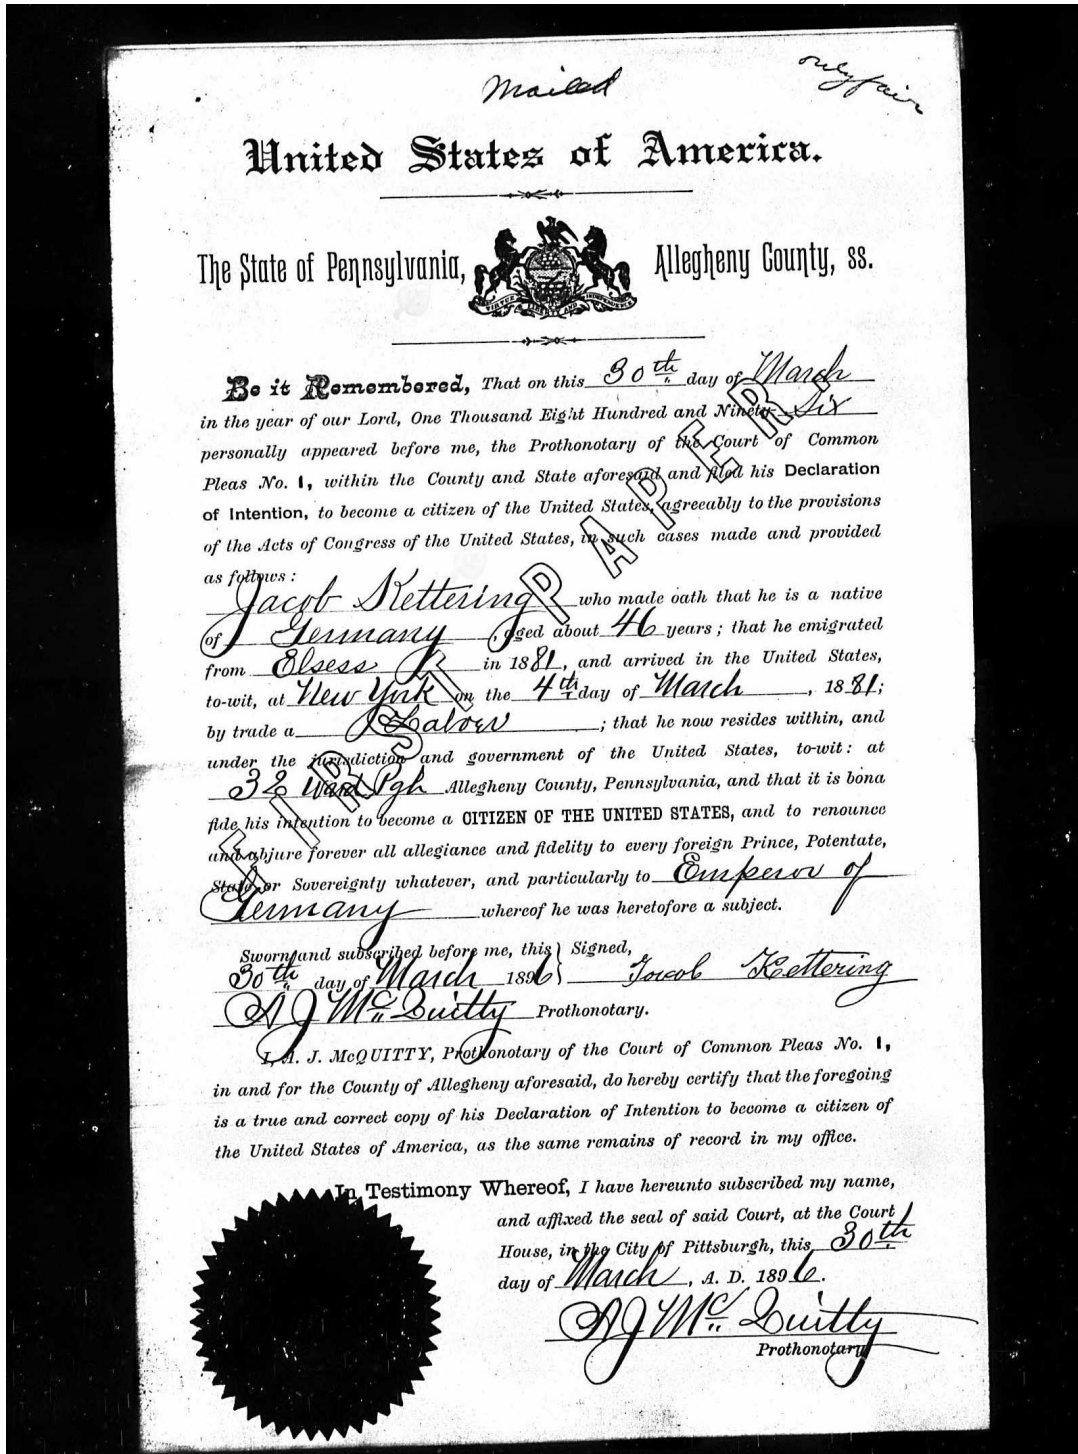 Mailed
only fair
United States of America.
The State of Pennsylvania, Allegheny County, ss.
VIRTUE LIBERTY AND INDEPENDENCE
Be it Remembered, That on this 30th day of March
in the year of our Lord, One Thousand Eight Hundred and Ninety-Six
personally appeared before me, the Prothonotary of the Court of Common
Pleas No. 1, within the County and State aforesaid and filed his Declaration
of Intention, to become a citizen of the United States, agreeably to the provisions
of the Acts of Congress of the United States, in such cases made and provided
as follows:
Jacob Kettering who made oath that he is a native
of Germany, aged about 46 years; that he emigrated
from Elsess in 1881, and arrived in the United States,
to-wit, at New York on the 4th day of March, 1881;
by trade a Labor; that he now resides within, and
under the jurisdiction and government of the United States, to-wit: at
32 Ward Pgh Allegheny County, Pennsylvania, and that it is bona
fide his intention to become a CITIZEN OF THE UNITED STATES, and to renounce
and abjure forever all allegiance and fidelity to every foreign Prince, Potentate,
State or Sovereignty whatever, and particularly to Emperor of
Germany whereof he was heretofore a subject.
Sworn and subscribed before me, this } Signed,
30th day of March 1896 } Jacob Kettering
A J McQuitty Prothonotary.
I, A. J. McQUITTY, Prothonotary of the Court of Common Pleas No. 1,
in and for the County of Allegheny aforesaid, do hereby certify that the foregoing
is a true and correct copy of his Declaration of Intention to become a citizen of
the United States of America, as the same remains of record in my office.
In Testimony Whereof, I have hereunto subscribed my name,
and affixed the seal of said Court, at the Court
House, in the City of Pittsburgh, this 30th
day of March, A. D. 1896.
A J McQuitty
Prothonotary
FIRST PAPER.